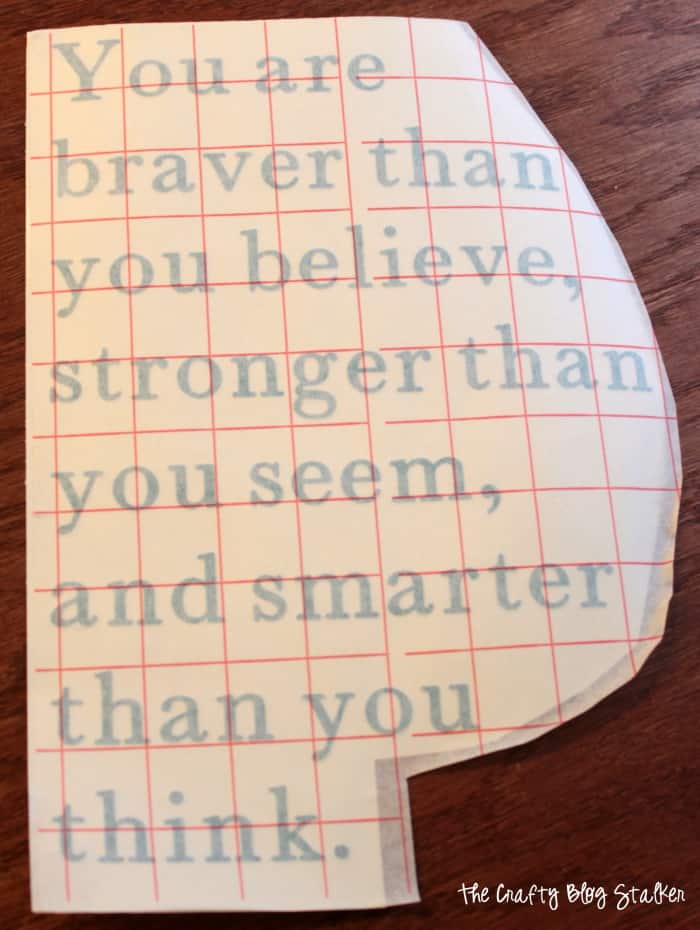 You are
braver than
you believe,
stronger than
you seem,
and smarter
than you
think.
The Crafty Blog Stalker